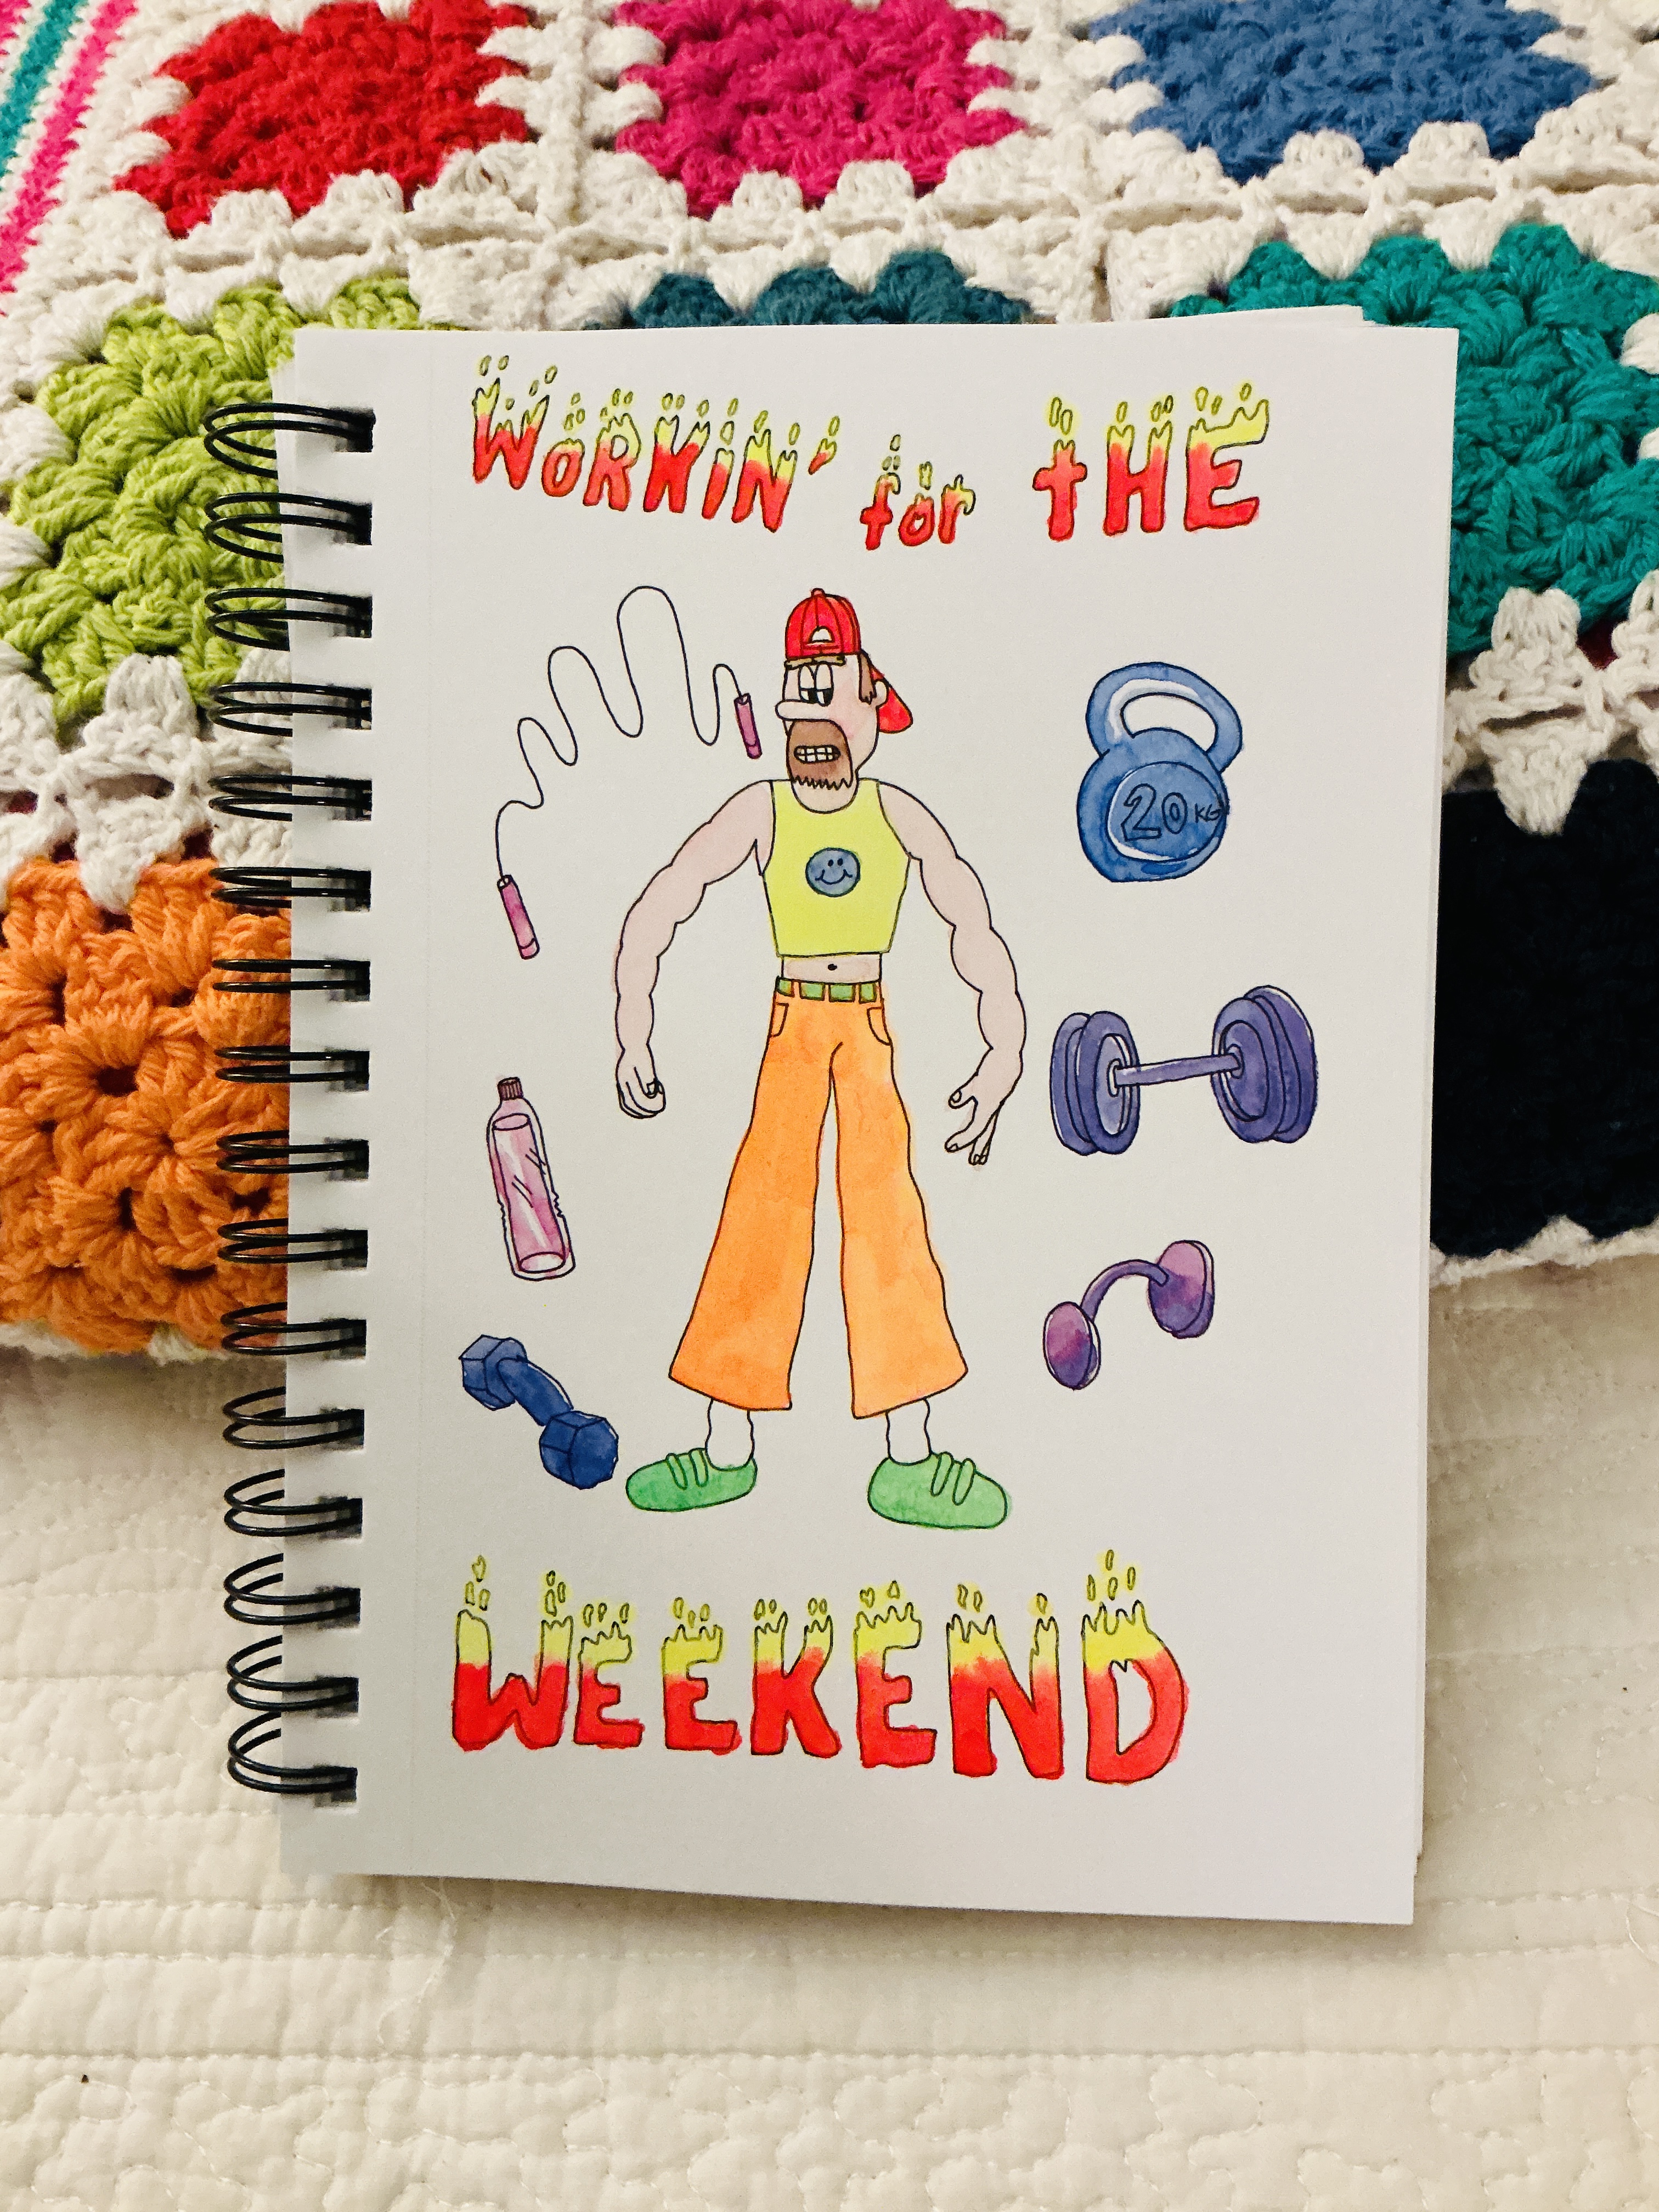 WORKIN' for tHE
20 KG
WEEKEND